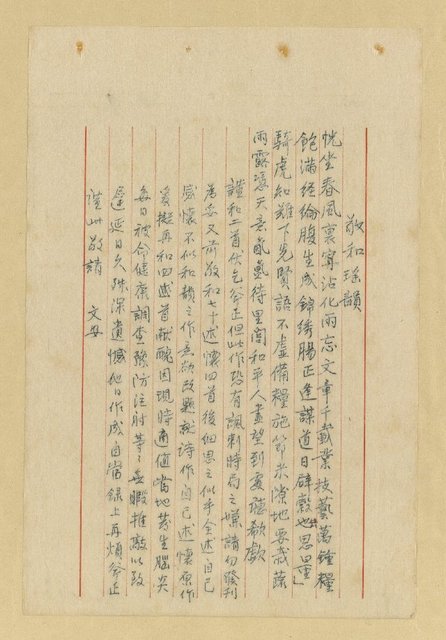 敬和瑤韻
恍坐春風裏寧沾化雨忘文章千載業技藝萬鍾糧
飽滿經綸腹生成錦绣腸正逢謀道日辟穀也思量」
騎虎知難下先賢語不虛備糧施節米隙地要栽蔬
雨露憑天意氈待里閭和平人盡望到處
謹和二首伏乞斧正但此作恐有諷刺時局之嫌請勿發刊
為妥又前敬和七十述懷四首後細思之似乎全述自己
感懷不似和韻之作意欲改題就詩作自己述懷原作
爰擬再和四感首献醜因現時適值當地發生腦炎
每日被命健康調查豫防注射等々無暇推敲以致
遷延日久殊深遺憾他日作成自當録上再煩斧正
謹此敬請　文安